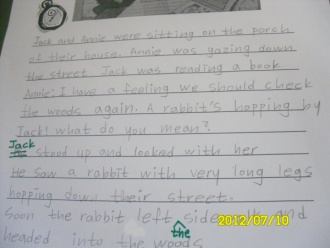 9
Jack and Annie were sitting on the porch
of their house. Annie was gazing down
the street Jack was reading a book
Annie: I have a feeling we should check
the woods again. A rabbit's hopping by
Jack! what do you mean?
Jack stood up and looked with her
He saw a rabbit with very long legs
hopping down their street.
Soon the rabbit left the and
headed into the woods
2012/07/10